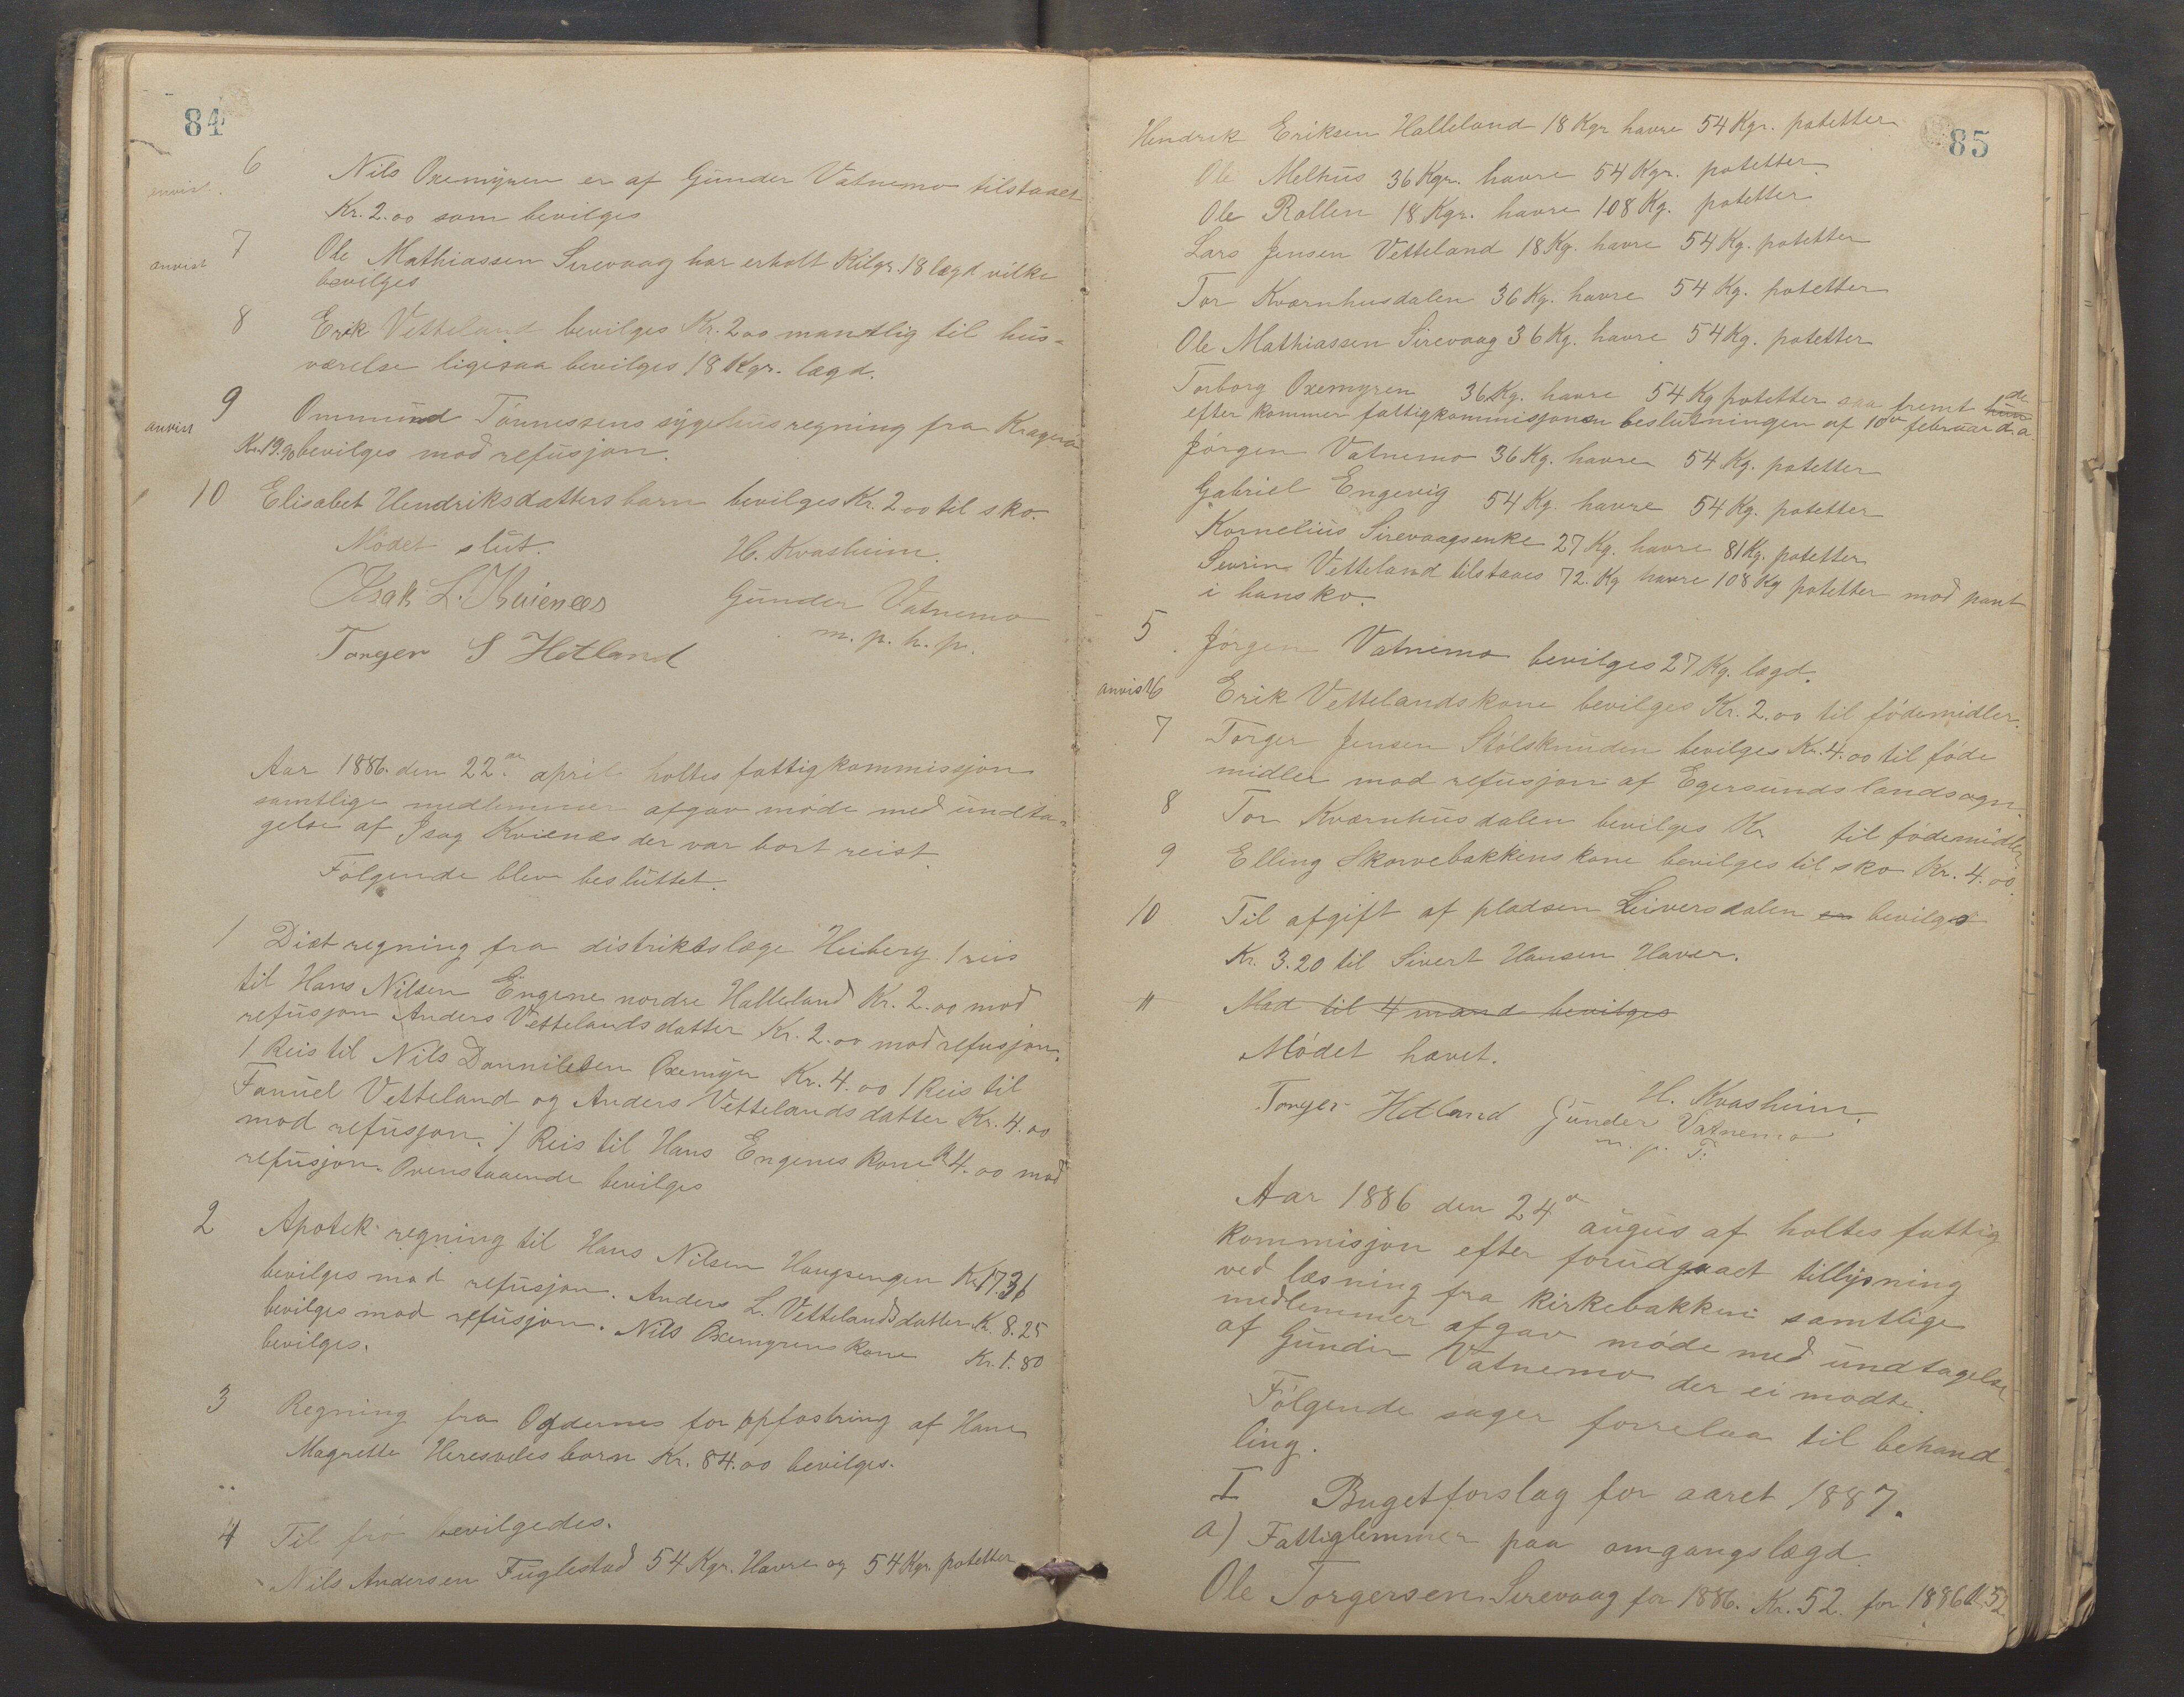 84
6 Nils Oxemyren er af Gunder Vatnemo tilstaaet
anvist
Kr. 2.00 som bevilges
7 Ole Mathiassen Sirevaag har erholt Kilgr. 18 lægd vilke
anvist
bevilges
8 Erik Vetteland bevilges Kr. 2.00 mantlig til hus-
værelse ligesaa bevilges 18 Kgr. lægd.
9 Ommund Tónnessens sygehusregning fra Kragerö
anvist
Kr. 19.90 bevilges mod refusjon.
10 Elisabet Hendriksdatters barn bevilges Kr. 2.00 til sko.
Módet slut.
H. Kvasheim.
Isak L. Kvienæs
Gunder Vatnemo
m. p. h. p.
Torger S Hetland
Aar 1886. den 22de april holtes fattigkommissjon
samtlige medlemmer afgav móde med undta-
gelse af Isag Kvienæs der var bort reist.
Fólgende blev besluttet.
1 Diætregning fra distriktslæge Heiberg 1 reis
til Hans Nilsen Engene nordre Halleland Kr. 2.00 mod
refusjon Anders Vettelandsdatter Kr. 2.00 mod refusjon.
1 Reis til Nils Dannilesen Oxemyr Kr. 4.00 1 Reis til
Fanuel Vetteland og Anders Vettelandsdatter Kr. 4.00
mod refusjon. 1 Reis til Hans Engenes kone Kr 4.00 mod
refusjon. Ovenstaaende bevilges
2 Apotek regning til Hans Nilsen Haugsengen Kr. 17.31
bevilges mod refusjon. Anders L. Vettelandsdatter Kr. 8.25
bevilges mod refusjon. Nils Oxemyrens kone Kr. 1.80
bevilges.
3 Regning fra Ogdernes for opfostring af Hane
Magrette Heresvelas barn Kr. 84.00 bevilges.
4 Til fró bevilgedes.
Nils Andersen Fuglestad 54 Kgr. Havre og 54 Kgr. potetter
85
Hendrik Eriksen Halleland 18 Kgr havre 54 Kgr. potetter
Ole Melhus 36 Kgr. havre 54 Kgr. potetter
Ole Rollen 18 Kgr. havre 108 Kg. potetter
Lars Jensen Vetteland 18 Kg. havre 54 Kg. potetter
Tor Kvornhusdalen 36 Kg. havre 54 Kg. potetter
Ole Mathiassen Sirevaag 36 Kg. havre 54 Kg. potetter
Torborg Oxemyren 36 Kg. havre 54 Kg potetter saa fremt de hun
efter kommer fattigkommisjonen beslutningen af 10de februar d.a.
Jórgen Vatnemo 36 Kg. havre 54 Kg. potetter
Gabriel Engevig 54 Kg. havre 54 Kg. potetter
Kornelius Sirevaagsenke 27 Kg. havre 81 Kg. potetter
Sevrin Vetteland tilstaaes 72 Kg havre 108 Kg potetter mod pant
i hans ko.
5 Jórgen Vatnemo bevilges 27 Kg. lægd.
anvist 6 Erik Vettelandskone bevilges Kr. 2.00 til fódemidler.
7 Torger Jensen Stólsknuden bevilges Kr. 4.00 til fóde
midler mod refusjon af Egersunds landsogn.
8 Tor Kværnhusdalen bevilges Kr til fódemidler
9 Elling Skarvebakkens kone bevilges til sko Kr. 4.00.
10 Til afgift af pladsen Leiversdalen en bevilges
Kr. 3.20 til Sivert Hansen Haver.
11 Mad til 4 mand bevilges
Módet hævet.
H. Kvasheim.
Torger Hetland Gunder Vatnemo
m. p. F.
Aar 1886 den 24de augus af holtes fattig
kommisjon efter forudgaaet tillysning
ved læsning fra kirkebakken samtlige
medlemmer afgav móde med undtagelse
af Gunder Vatnemo der ei modte.
Fólgende sager forrelaa til behand-
ling.
I Bugetforslag for aaret 1887.
a) Fattiglemmer paa omgangslægd.
Ole Torgersen Sirevaag for 1886. Kr. 52. for 1886 Kr. 52